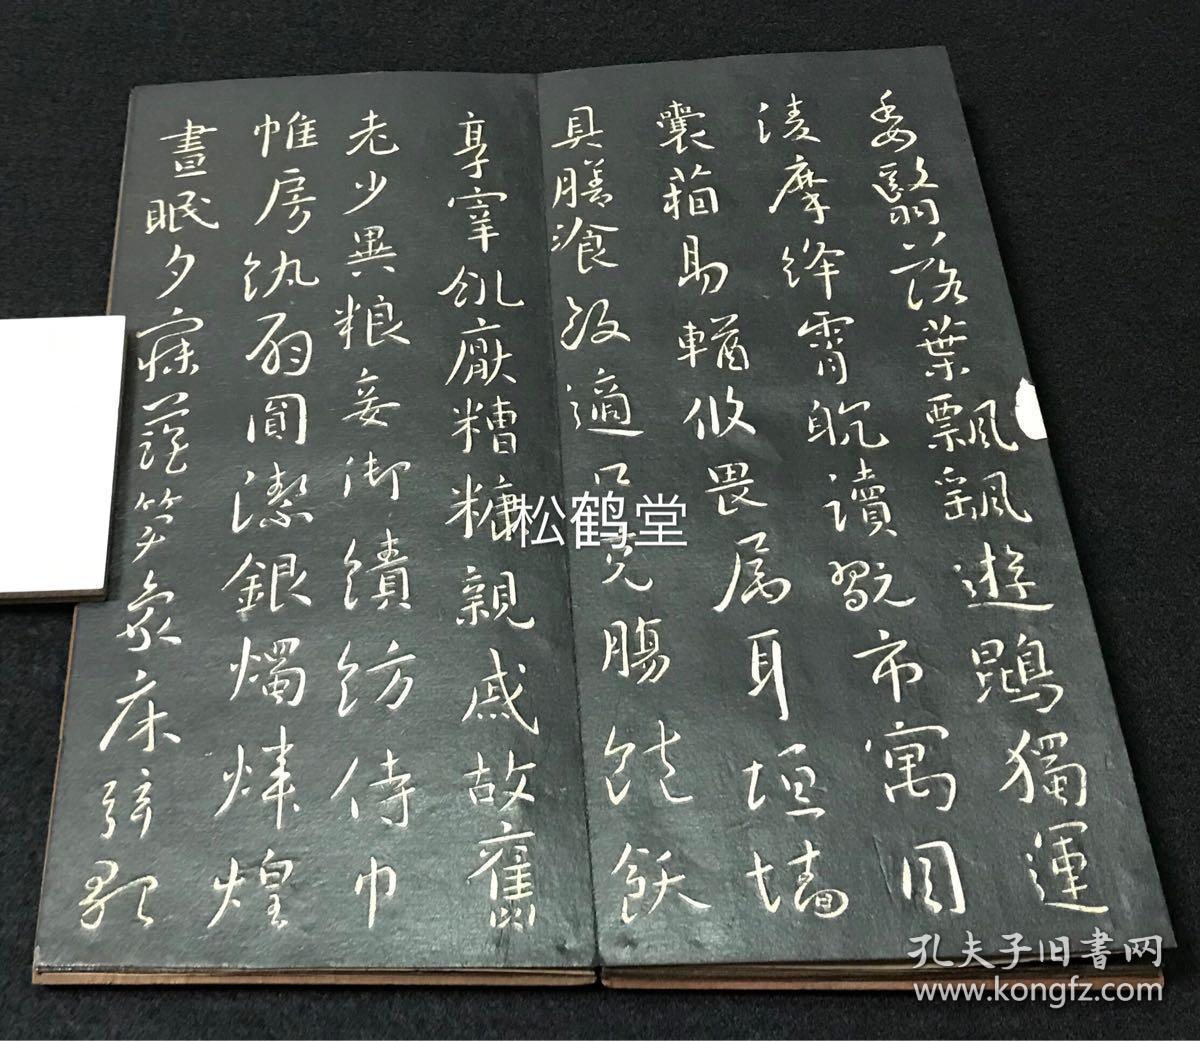 委翳落葉飄颻遊鵾獨運
淩摩絳霄耽讀翫市寓目
囊箱易輶攸畏属耳垣墻
具膳飡飯適口充腸飽飫
享宰飢厭糟糠親戚故舊
老少異粮妾御績紡侍巾
帷房紈扇圓潔銀燭煒煌
晝眠夕寐藍笋象床弦歌
松鹤堂
孔夫子旧书网
www.kongfz.com